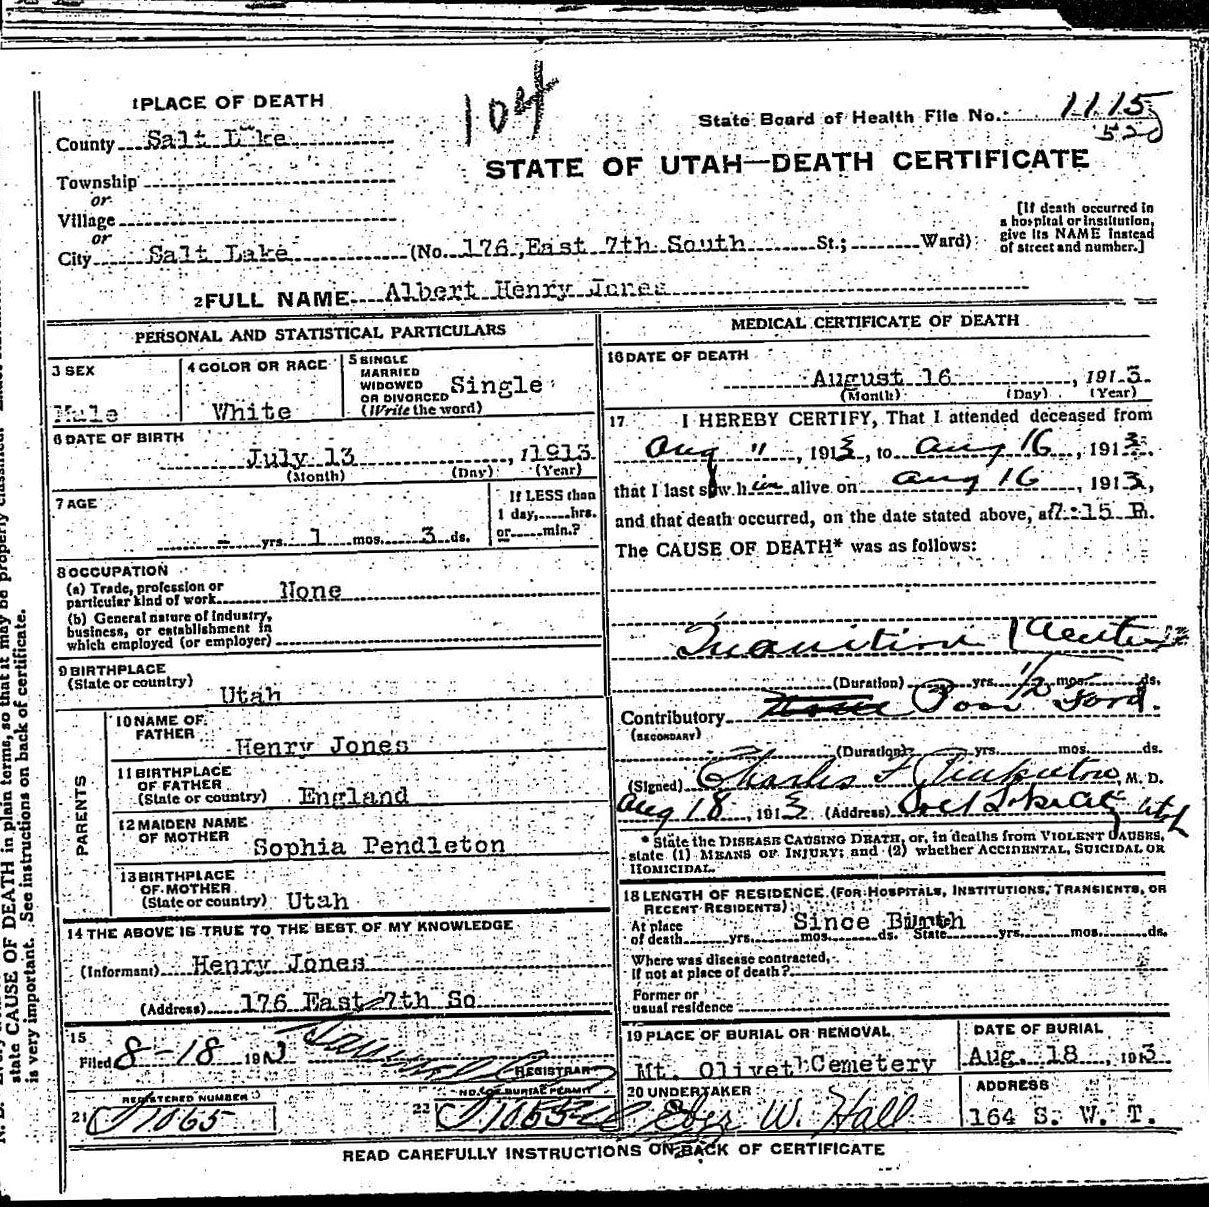 1 PLACE OF DEATH
104
State Board of Health File No. 1115
520
County Salt Lake
STATE OF UTAH—DEATH CERTIFICATE
Township
or
Village
or
City Salt Lake (No. 176, East 7th South St.; Ward)
[If death occurred in
a hospital or institution,
give its NAME instead
of street and number.]
2 FULL NAME Albert Henry Jones
PERSONAL AND STATISTICAL PARTICULARS
3 SEX
Male
4 COLOR OR RACE
White
5 SINGLE
MARRIED
WIDOWED
OR DIVORCED
(Write the word)
Single
6 DATE OF BIRTH
July 13, 1913
(Month) (Day) (Year)
7 AGE
- yrs. 1 mos. 3 ds.
If LESS than
1 day, hrs.
or min.?
8 OCCUPATION
(a) Trade, profession or
particular kind of work None
(b) General nature of industry,
business, or establishment in
which employed (or employer)
9 BIRTHPLACE
(State or country)
Utah
PARENTS
10 NAME OF
FATHER
Henry Jones
11 BIRTHPLACE
OF FATHER
(State or country) England
12 MAIDEN NAME
OF MOTHER
Sophia Pendleton
13 BIRTHPLACE
OF MOTHER
(State or country) Utah
14 THE ABOVE IS TRUE TO THE BEST OF MY KNOWLEDGE
(Informant) Henry Jones
(Address) 176 East 7th So
15
Filed 8-18 1913
REGISTRAR
REGISTERED NUMBER
21
1065
NO. OF BURIAL PERMIT
22
MEDICAL CERTIFICATE OF DEATH
16 DATE OF DEATH
August 16, 1913
(Month) (Day) (Year)
17 I HEREBY CERTIFY, That I attended deceased from
Aug 11, 1913, to Aug 16, 1913.
that I last saw him alive on Aug 16, 1913,
and that death occurred, on the date stated above, at 7:15 P.
The CAUSE OF DEATH* was as follows:
Inanition (Acute
(Duration) yrs. 1/2 mos. ds.
Contributory Poor Food.
(SECONDARY)
(Duration) yrs. mos. ds.
(Signed) Charles F Pinkerton, M. D.
Aug 18, 1913 (Address) Salt Lake City Utah
* State the DISEASE CAUSING DEATH, or, in deaths from VIOLENT CAUSES,
state (1) MEANS OF INJURY; and (2) whether ACCIDENTAL, SUICIDAL OR
HOMICIDAL.
18 LENGTH OF RESIDENCE (FOR HOSPITALS, INSTITUTIONS, TRANSIENTS, OR
RECENT RESIDENTS)
Since Birth
At place
of death yrs. mos. ds. State yrs. mos. ds.
Where was disease contracted,
if not at place of death?
Former or
usual residence
19 PLACE OF BURIAL OR REMOVAL
Mt. Olivet Cemetery
DATE OF BURIAL
Aug. 18, 1913
20 UNDERTAKER
Eber W. Hall
ADDRESS
164 S. W. T.
READ CAREFULLY INSTRUCTIONS ON BACK OF CERTIFICATE
state CAUSE OF DEATH in plain terms, so that it may be properly classified.
is very important. See instructions on back of certificate.